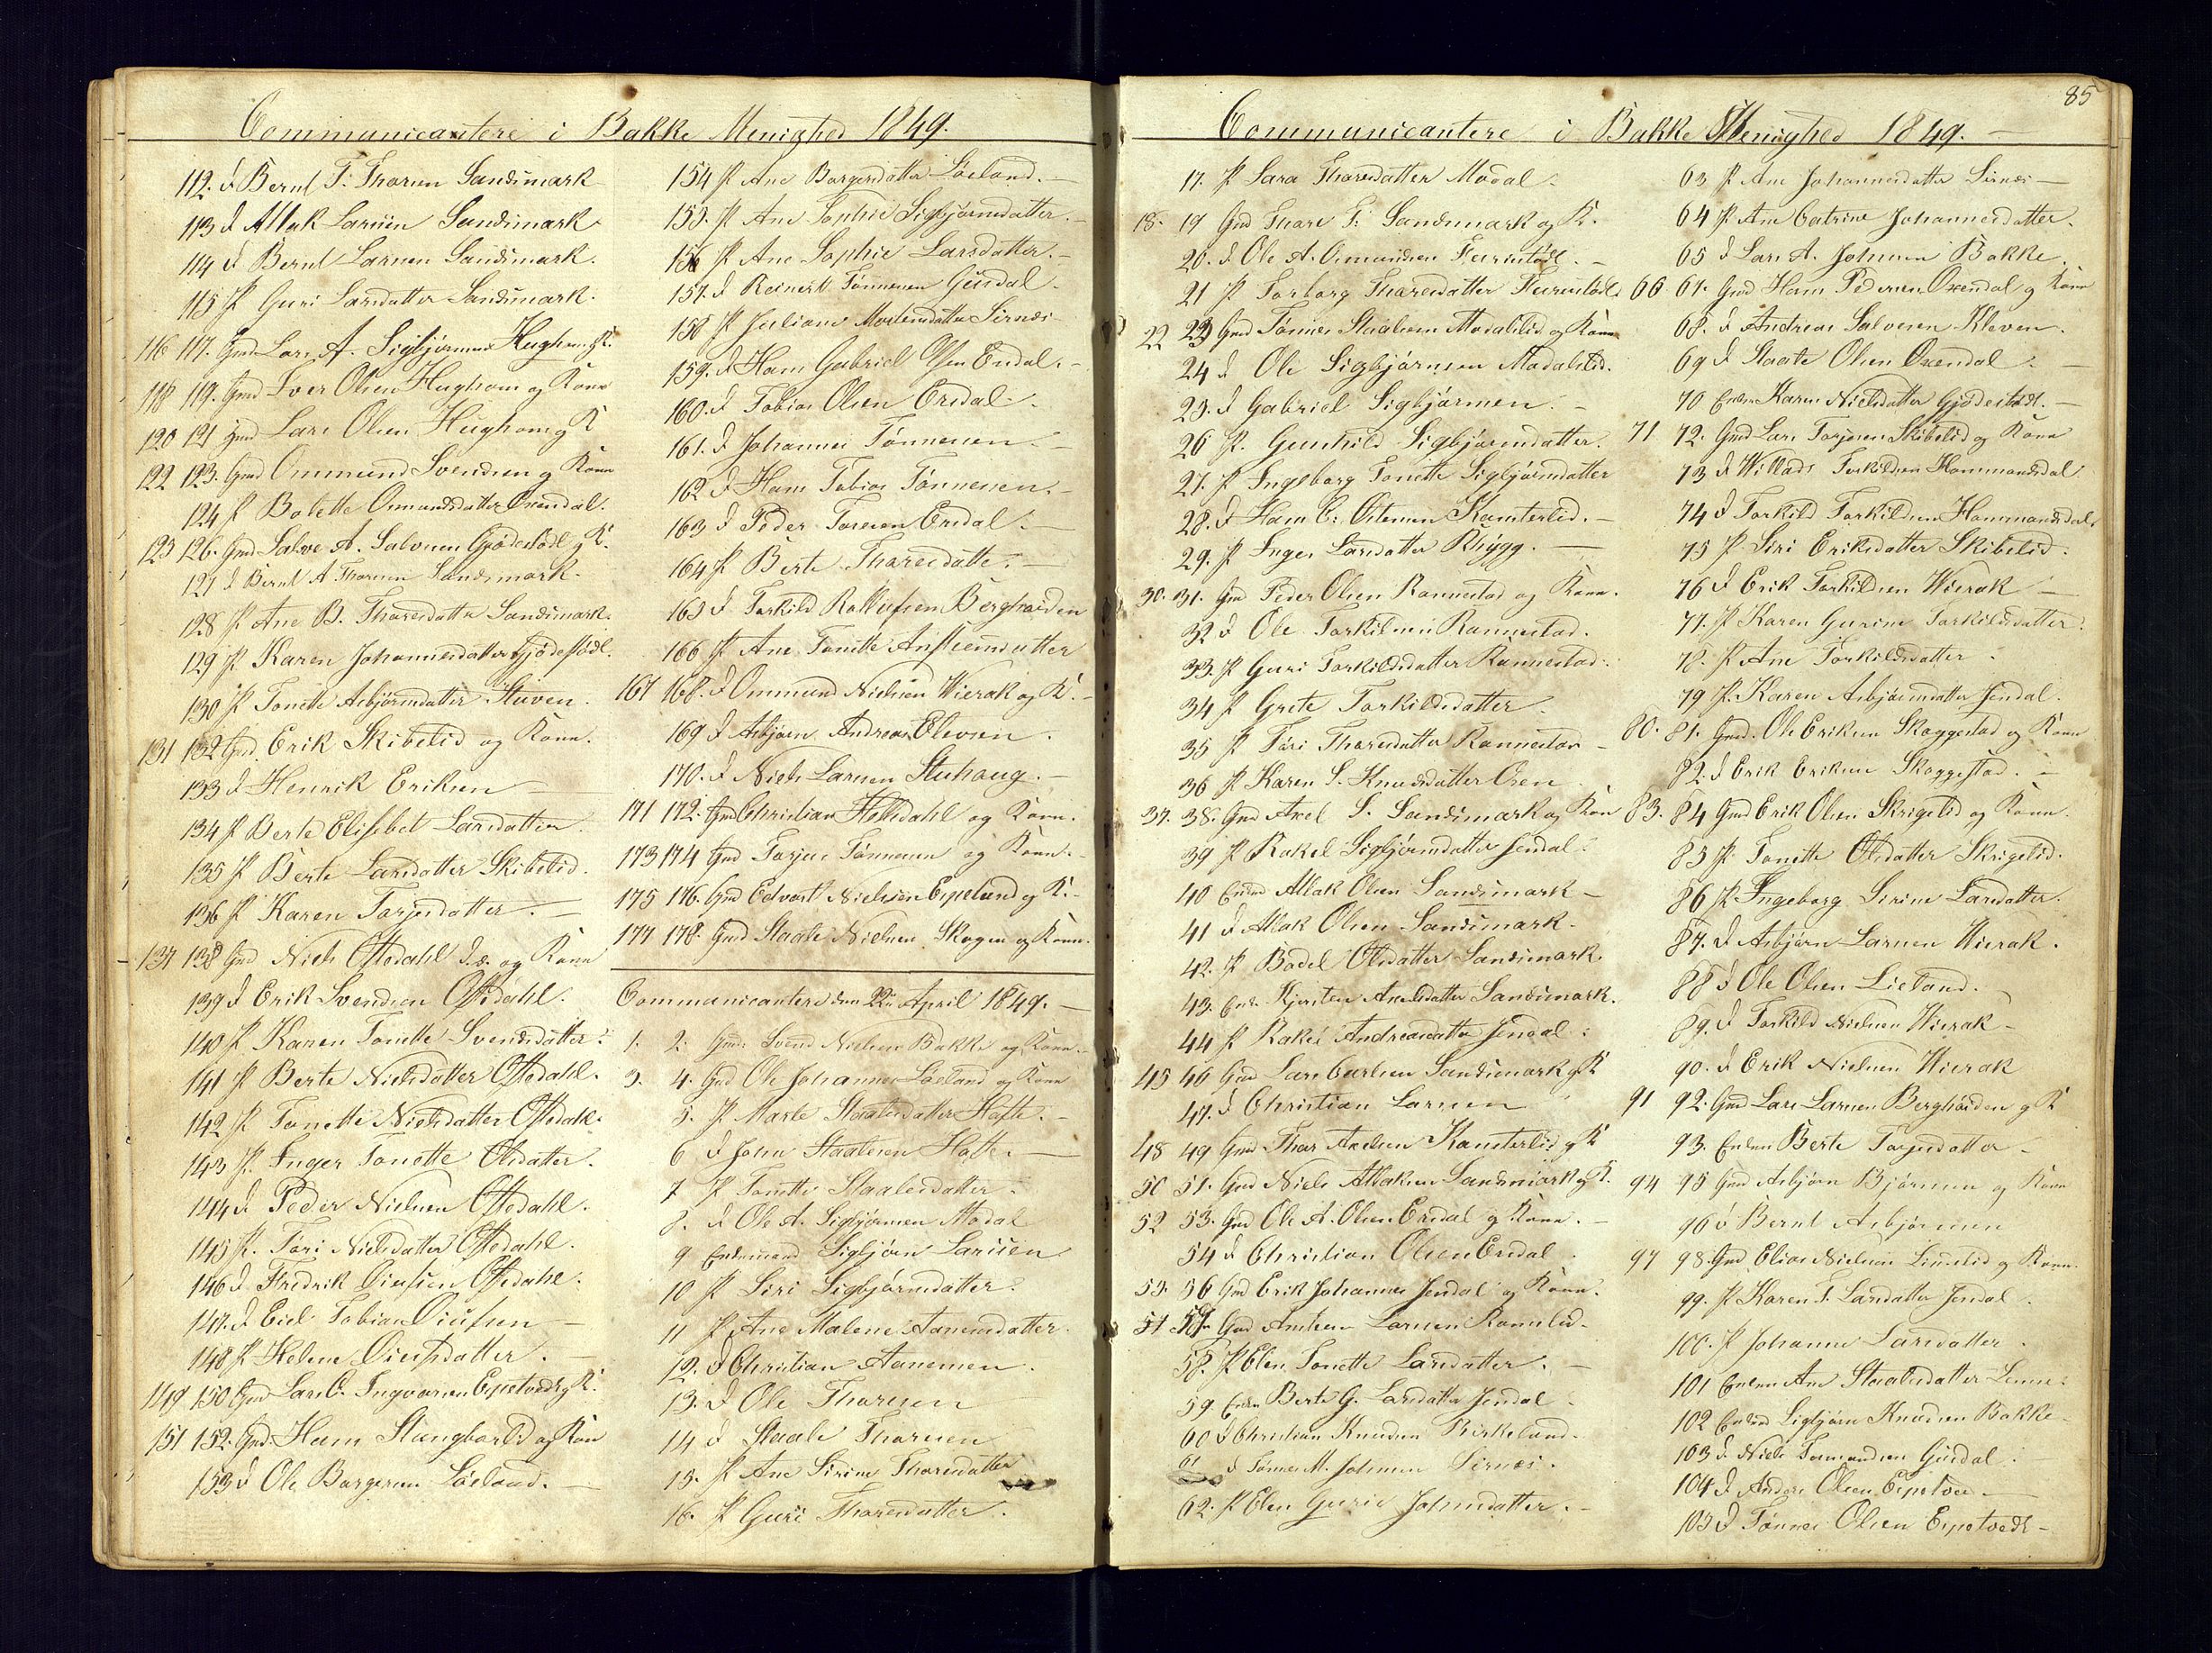 Communicantere i Bakke Menighed 1849.
112. d Bernt T. Thorsen Sandsmark
113 d Atlak Larsen Sandsmark
114 d Bernt Larsen Sandsmark.
115 P Guri Larsdatter Sandsmark.
116 117. Gmd Lars A. Sigbjörnsen Hughom g K.
118 119. Gmd Iver Olsen Hughom og Kone
120 121 Gmd Lars Olsen Hughom g K
122 123. Gmd Ommund Svendsen g Kone
124 P Bolette Omundsdatter Oxendal.
125 126. Gmd Salve A. Salvesen Gjödestöl g K.
127 d Bernt A Thorsen Sandsmark.
128 P Ane B. Thorsdatter Sandsmark.
129 P. Karen Johannesdatter Gjödestöl.
130 P Tonette Asbjörnsdatter
131 132 Gmd Erik Skibelid og Kone.
133 d Henrik Eriksen —
134 P Berte Elisebet Larsdatter.
135 P Berte Larsdatter Skibelid.
136 P Karen Torjesdatter. —
137 138 Gmd Niels Oftedahl og Kone
139 d Erik Svendsen Oftedahl.
140 P. Karen Tonette Svendsdatter.
141 P Berte Nielsdatter Oftedahl.
142 P Tonette Nielsdatter Oftedahl.
143 P. Inger Tonette Olsdatter.
144 d Peder Nielsen Oftedahl.
145 P. Töri Nielsdatter Oftedahl.
146 d Fredrik Oftedahl.
147. d Eiel Tobias
148 P Helene
149 150 Gmd Lars C. Ingvarsen Espetvedt g K.
151 152. Gmd Hans Stangborlid og Kone
153 d Ole Borgersen Löeland. —
154 P Ane Borgersdatter Löeland. —
155. P Ane Sophie Sigbjörnsdatter. —
156 P Ane Sophie Larsdatter. —
157. d Reinert Tönnesen Gusdal.
158 P Juliane Mortensdatter Sirnæs
159. d Hans Gabriel Olsen Erdal. —
160. d Tobias Olsen Ersdal.
161. d Johannes Tönnesen. —
162 d Hans Tobias Tönnesen. —
163 d Peder Toresen Ersdal. —
164 P Berte Thoresdatter. —
165 d Torkild Bergheiden
166 P Ane Tonette
167 168. d Ommund Nielsen Wierak og K. —
169 d Asbjörn Andreas Eleven.
170. d Niels Larsen Stuhaug. —
171 172. Gmd Christian Hellsdahl og Kone.
173 174 Gmd Torjus Tönnesen og Kone. —
175 176. Gmd Edvart Nielsen Espeland g K. —
177 178. Gmd Staale Nielsen Skogen og Kone.
Communicantere den 22n April 1849. —
1. 2. Gmd Svend Nielsen Bakke og Kone.
3. 4. Gmd Ole Johannes Löeland og Kone
5. P Marte Staalesdatter Hafte. —
6 d John Staalesen Hafte. —
7 P Tonette Staalesdatter.
8. d Ole A. Sigbjörnsen Modal
9 Enkemand Sigbjörn Larsen
10 P Siri Sigbjörnsdatter.
11 P Ane Malene Aanensdatter.
12. d Christian Aanensen.
13. d Ole Thorsen
14 d Staale Thorsen
15. P Ane Sirine Thorsdatter
16. P Guri Thoresdatter.
85
Communicantere i Bakke Menighed 1849. —
17. P Sara Thoresdatter Modal.
18. 19 Gmd Thore T. Sandsmark og K.
20. d Ole A. Omundsen Fuurestöl. —
21 P Torborg Thoresdatter Fuurestöl
22 23 Gmd Tönnes Staalesen Modalslid og Kone
24 d Ole Sigbjörnsen Modalslid.
25. d Gabriel Sigbjörnsen. —
26 P. Gunhild Sigbjörnsdatter.
27. P Ingeborg Tonette Sigbjörnsdatter
28. d Hans C. Osternsen Kamsterlid. —
29. P Inger Larsdatter Rhÿgg. —
30. 31. Gmd Peder Olsen Rannestad og Kone.
32 d Ole Torkilsen Rannestad.
33. P Guri Torkildsdatter Rannestad.
34 P Grete Torkildsdatter.
35 P Töri Thorsdatter Rannestad —
36 P Karen S. Knudsdatter Osen
37. 38. Gmd Axel S. Sandsmark og Kone
39 P Rakel Sigbjörnsdatter Jendal.
40 Enkmd Atlak Olsen Sandsmark —
41 d Atlak Olsen Sandsmark.
42. P Bodel Olsdatter Sandsmark.
43. Enke Kjersten Axelsdatter Sandsmark.
44 P Rakel Andreasdatter Jendal.
45 46 Gmd Lars Carlsen Sandsmark g K
47. d Christian Larsen
48 49 Gmd Thor Axelsen Kamsterlid g K
50 51. Gmd Niels Atlaksen Sandsmark g K.
52 53. Gmd Ole A. Olsen Ersdal g Kone. —
54 d Christian Olsen Ersdal.
55. 56 Gmd Erik Johannes Jendal og Kone.
57 Gmd Larsen
58. P Elen Tonette Larsdatter. —
59 Enke Berte G. Larsdatter Jendal.
60 d Christian Knudsen Birkeland.
61 d Tönnes M. Johnsen Sirnæs.
62. P Elen Gurie Johnsdatter. —
63 P Ane Johannesdatter Sirnæs —
64 P Ane Catrine Johannesdatter.
65 d Lars A. Johnsen Bakke.
66 67. Gmd Hans Pedersen Oxendal g Kone
68. d Andreas Salvesen Kleven.
69 d Staale Olsen Oxendal. —
70 Enken Karen Nielsdatter Gjödestöl. —
71 72. Gmd Lars Torjesen Skibelid og Kone
73 d Willads Torkildsen Hommandsdal
74 d Torkild Torkildsen Hommandsdal.
75 P. Siri Eriksdatter Skibelid.
76 d Erik Torkildsen Wierak —
77. P Karen Gurine Torkildsdatter.
78. P Ane Torkildsdatter
79 P. Karen Asbjörnsdatter Jendal.
80. 81. Gmd. Ole Eriksen Skoggestad og Kone
82. d Erik Eriksen Skoggestad. —
83. 84 Gmd Erik Olsen Skrigelid og Kone.
85 P. Tonette Olsdatter Skrigelid.
86 P. Ingeborg Sirine Larsdatter.
87. d Asbjörn Larsen Wierak.
88 d Ole Olsen Lieland.
89. d Torkild Nielsen Wierak —
90. d Erik Nielsen Wierak
91 92. Gmd Lars Larsen Berghöiden g K
93. Enken Berte Torjesdatter —
94 95 Gmd Asbjörn Björnsen og Kone
96 d Bernt Asbjörnsen
97 98. Gmd Elias Nielsen og Kone.
99. P Karen T. Larsdatter Jendal.
100. P Johanne Larsdatter.
101 Enken Ane Staalesdatter
102 Enkmd Sigbjörn Knudsen Bakke
103 d Niels Gusdal.
104 d Anders Olsen
105 d Tönnes Olsen Espetvedt —